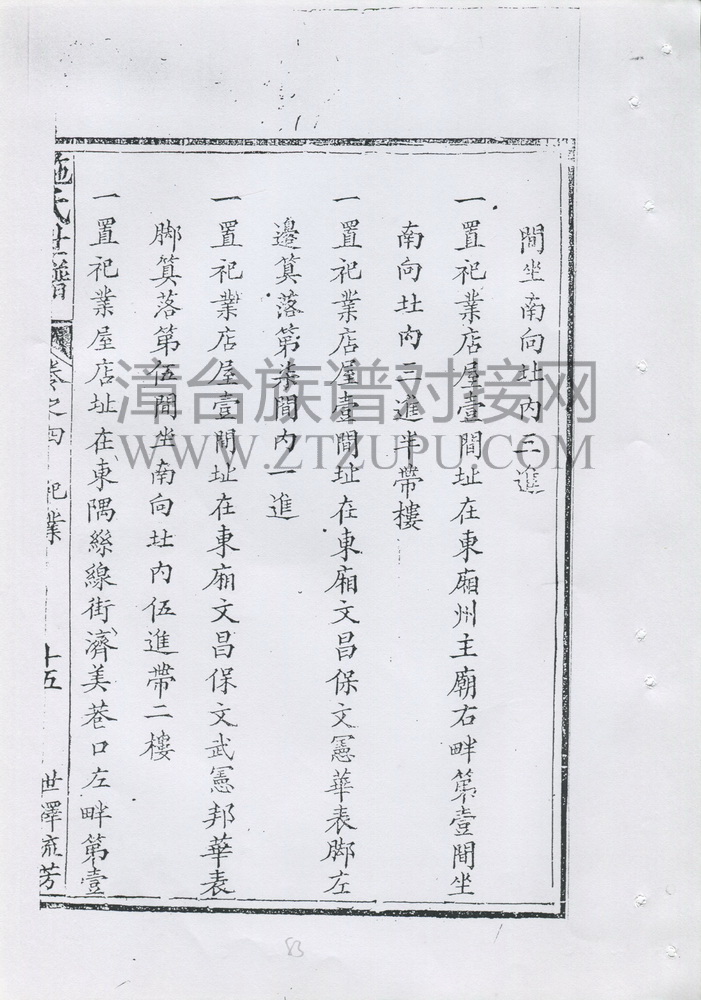 間坐南向址内三進
一置祀業店屋壹間址在東廂州主廟右畔第壹間坐
南向址内三進半帶樓
一置祀業店屋壹間址在東廂文昌保文憲華表脚左
邊算落第柒間内一進
一置祀業店屋壹間址在東廂文昌保文武憲邦華表
脚算落第伍間坐南向址内伍進帶二樓
一置祀業屋店址在東隅絲線街濟美巷口左畔第壹
施氏世譜 卷之四 祀業 十五 世澤流芳
漳台族谱对接网
WWW.ZTZUPU.COM
83